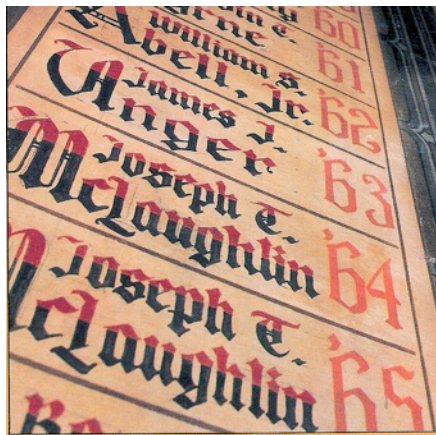 '60
William S.
Abell, Jr. '61
James J.
Unger '62
Joseph T.
McLaughlin '63
Joseph T.
McLaughlin '64
'65